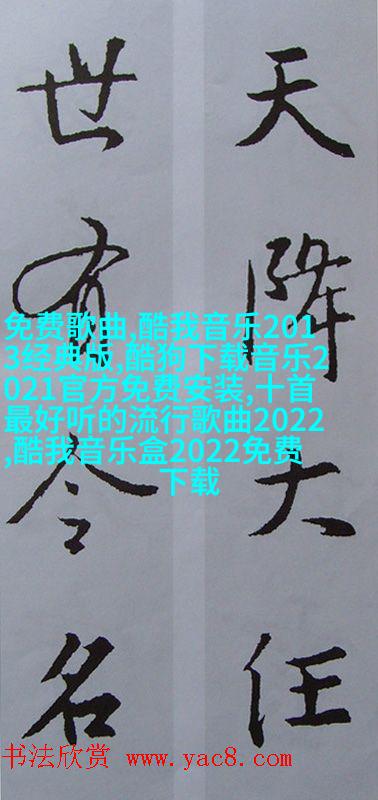 天降大任
世有令名
免费歌曲,酷我音乐201
3经典版,酷狗下载音乐2
021官方免费安装,十首
最好听的流行歌曲2022
,酷我音乐盒2022免费
下载
书法欣赏 www.yac8.com